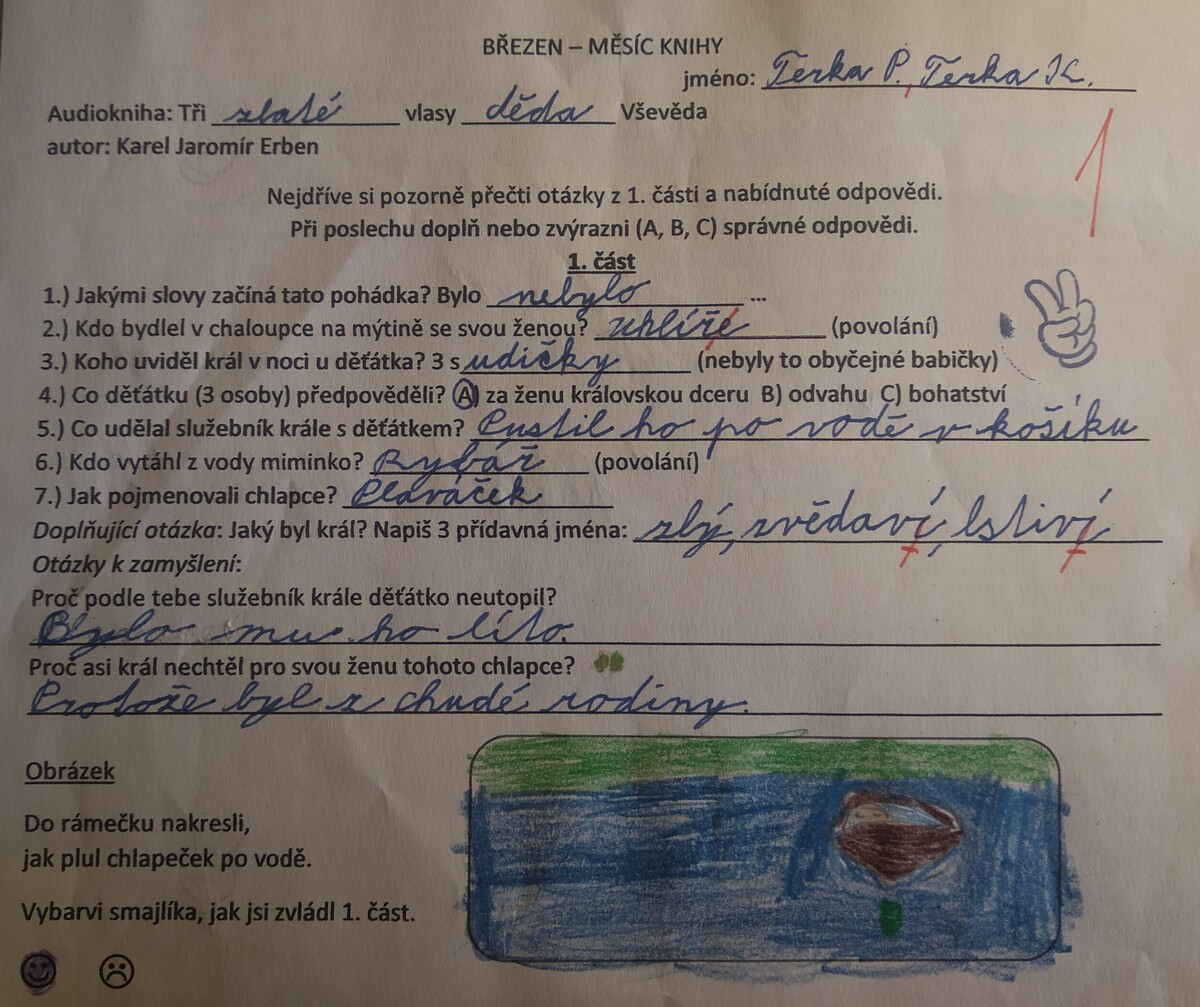 BŘEZEN – MĚSÍC KNIHY
jméno: Terka P., Terka K.
Audiokniha: Tři zlaté vlasy děda Vševěda
autor: Karel Jaromír Erben
1
Nejdříve si pozorně přečti otázky z 1. části a nabídnuté odpovědi.
Při poslechu doplň nebo zvýrazni (A, B, C) správné odpovědi.
1. část
1.) Jakými slovy začíná tato pohádka? Bylo nebylo ...
2.) Kdo bydlel v chaloupce na mýtině se svou ženou? uhlíře (povolání)
3.) Koho uviděl král v noci u děťátka? 3 sudičky (nebyly to obyčejné babičky)
4.) Co děťátku (3 osoby) předpověděli? A) za ženu královskou dceru B) odvahu C) bohatství
5.) Co udělal služebník krále s děťátkem? Pustil ho po vodě v košíku
6.) Kdo vytáhl z vody miminko? Rybář (povolání)
7.) Jak pojmenovali chlapce? Plaváček
Doplňující otázka: Jaký byl král? Napiš 3 přídavná jména: zlý, zvědaví, lstiví
Otázky k zamyšlení:
Proč podle tebe služebník krále děťátko neutopil?
Bylo mu ho líto.
Proč asi král nechtěl pro svou ženu tohoto chlapce?
Protože byl z chudé rodiny.
Obrázek
Do rámečku nakresli,
jak plul chlapeček po vodě.
Vybarvi smajlíka, jak jsi zvládl 1. část.